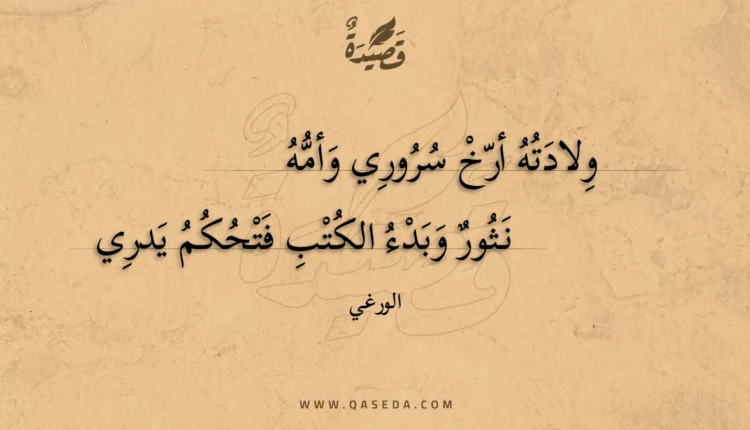 قَصِيْدَةٌ
وِلادَتُهُ أرّخْ سُرُورِي وَأمُّهُ
نَثُورٌ وَبَدْءُ الكُتْبِ فَتْحُكُمُ يَدرِي
الورغي
WWW.QASEDA.COM